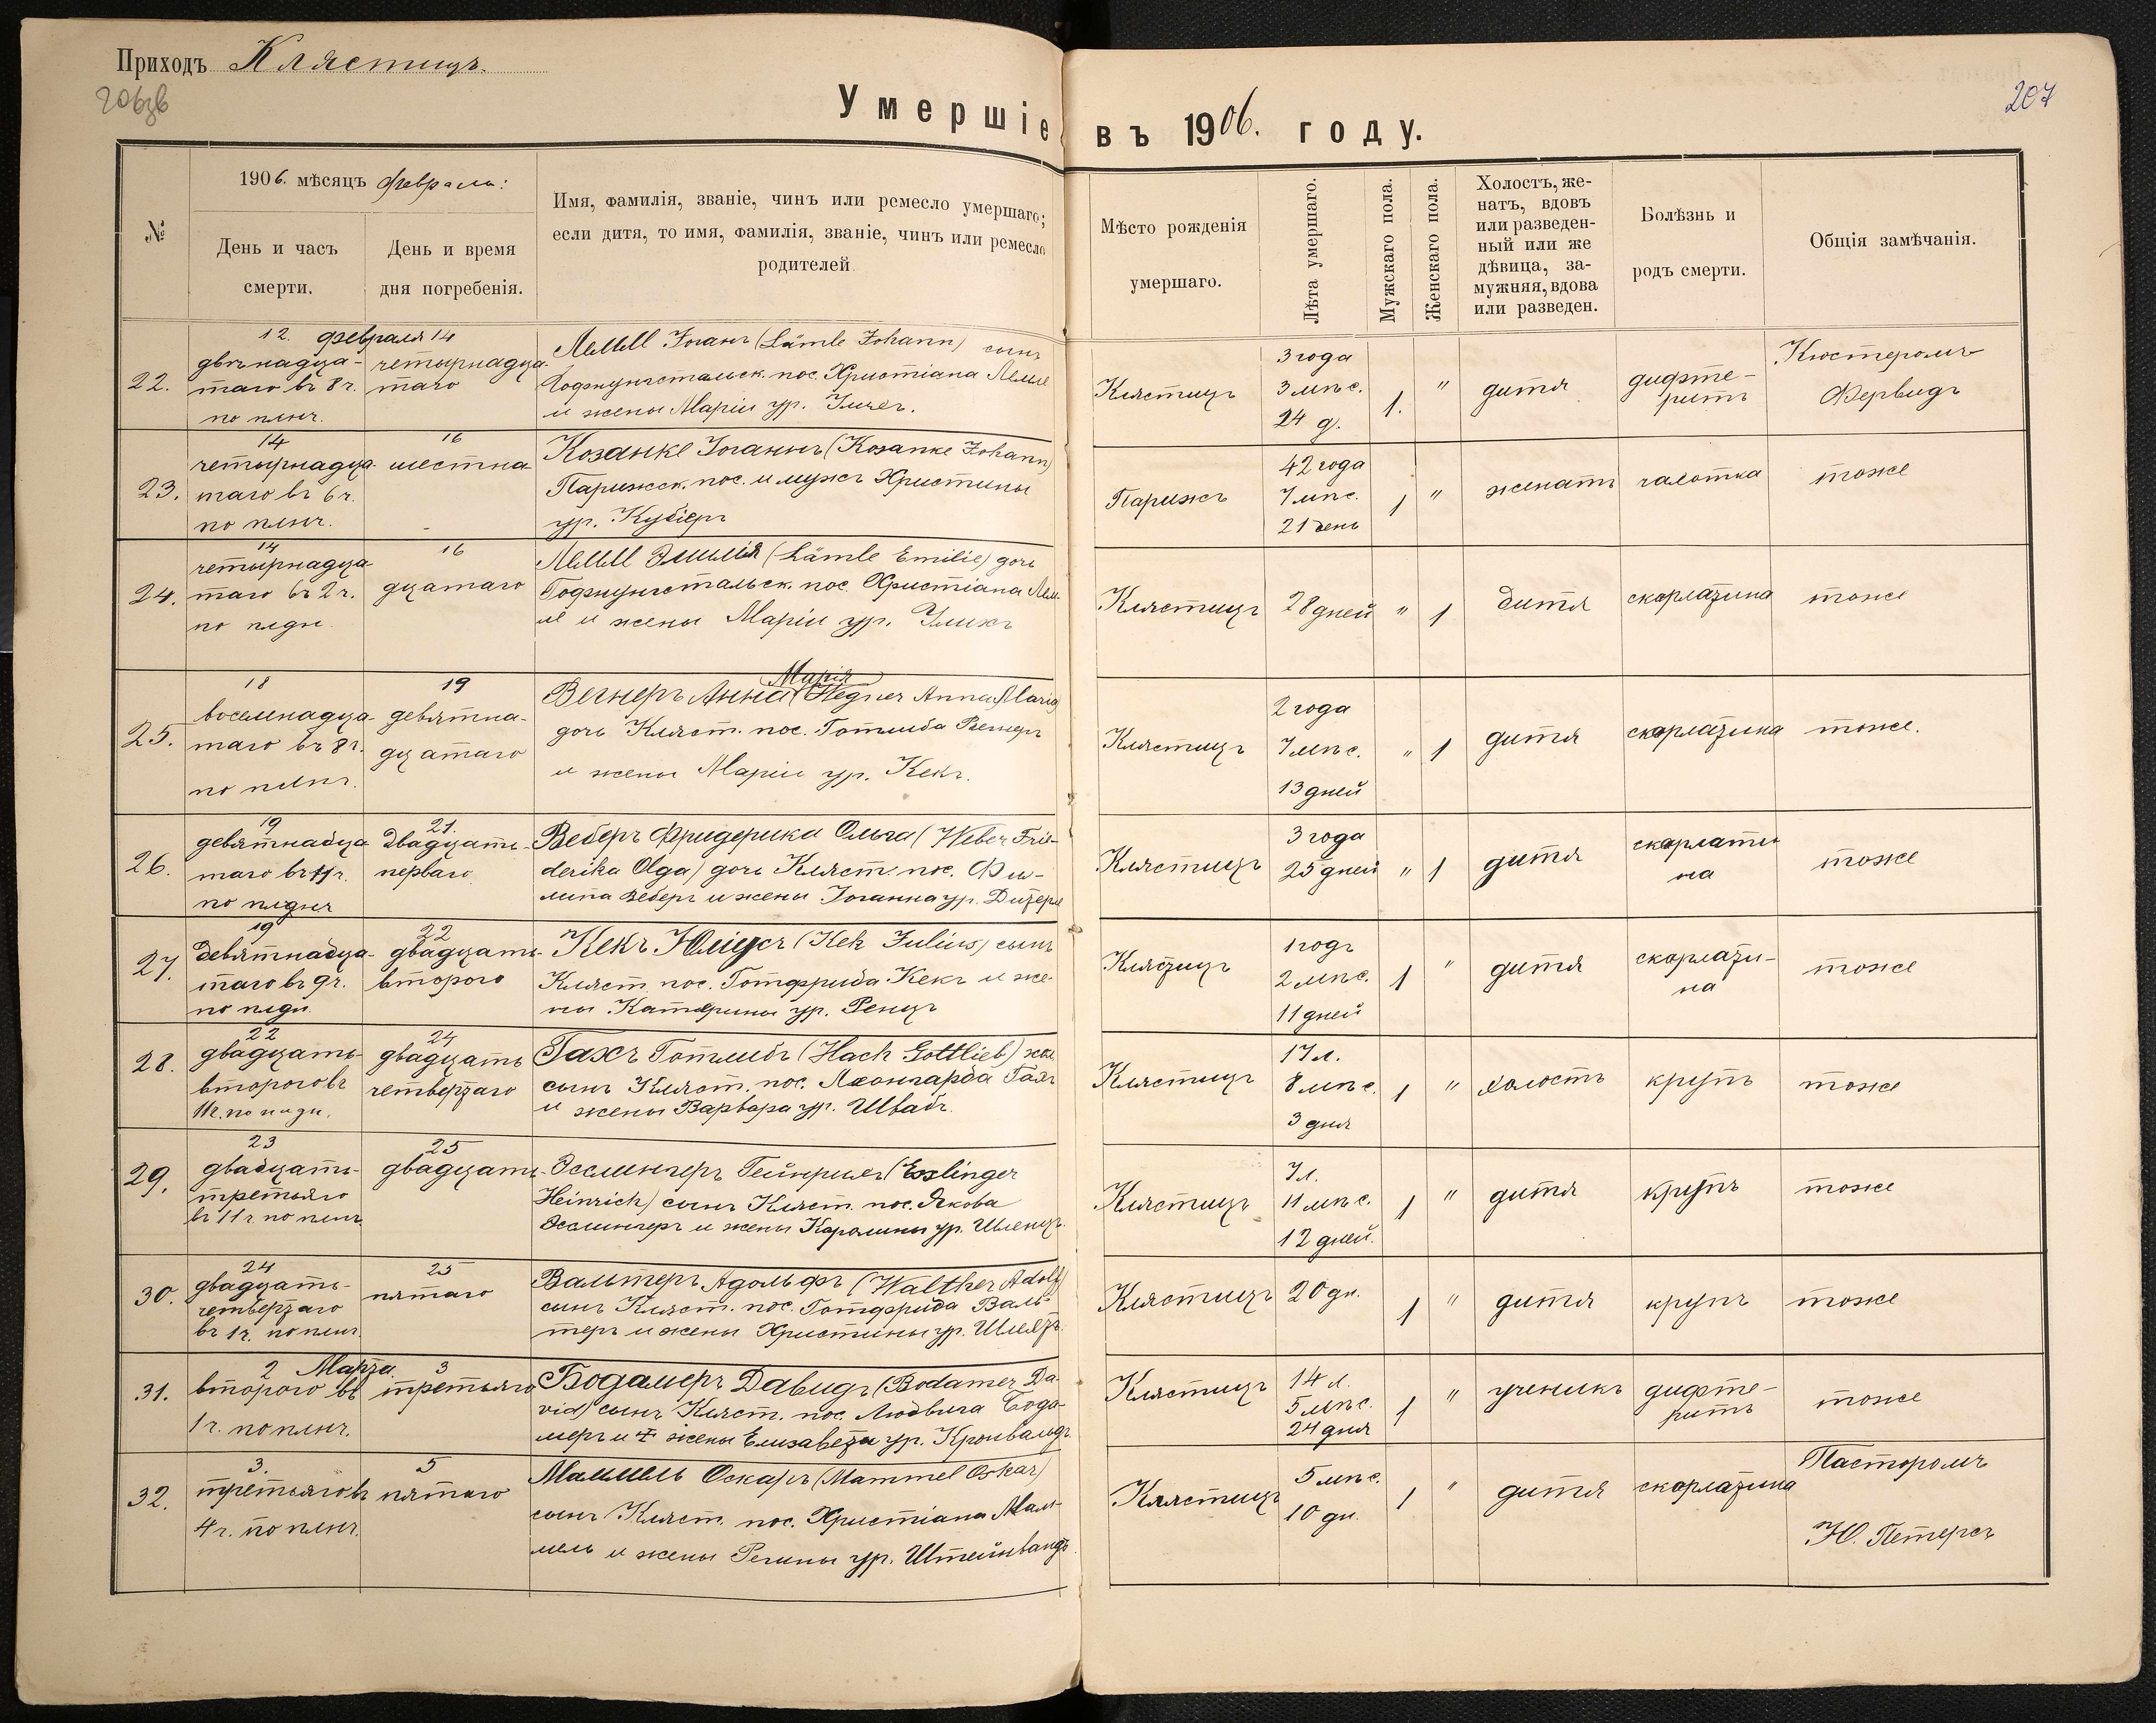 Приходъ Клястицъ.
206зв
207
Умершіе въ 1906. году.
№
1906. мѣсяцъ февраль:
День и часъ смерти.
День и время дня погребенія.
Имя, фамилія, званіе, чинъ или ремесло умершаго;
если дитя, то имя, фамилія, званіе, чинъ или ремесло
родителей
Мѣсто рожденія
умершаго.
Лѣта умершаго.
Мужскаго пола.
Женскаго пола.
Холостъ, же-
натъ, вдовъ
или разведен-
ный или же
дѣвица, за-
мужняя, вдова
или разведен.
Болѣзнь и
родъ смерти.
Общія замѣчанія.
22.
12. февраля 14
двѣнадца-
таго въ 8 ч.
по плнч.
четырнадца-
таго
Лемле Іоганъ (Lämle Johann) сынъ
Гофнунгстальск. пос. Христіана Лемле
и жены Маріи ур.
Клястицъ
3 года
3 мѣс.
24 д.
1.
"
дитя
дифте-
ритъ
Кюстеромъ
Фервидъ
23.
14
четырнадца-
таго въ 6 ч.
по плнч.
16
шестна-
Козанке Іоганнъ (Kosanke Johann)
Парижск. пос. и мужъ Христины
ур.
Парижъ
42 года
7 мѣс.
21 день
1
"
женатъ
чахотка
тоже
24.
14
четырнадца-
таго въ 2 ч.
по плдн
16
дцатаго
Лемле Эмилія (Lämle Emilie) дочь
Гофнунгстальск. пос. Христіана Лем-
ле и жены Маріи ур.
Клястицъ
28 дней
"
1
дитя
скарлатина
тоже
25.
18
восемнадца-
таго въ 8 ч.
по плнч.
19
девятна-
дцатаго
Марія
Вегнеръ Анна (Wegner Anna Maria
дочь Кляст. пос. Готлиба Вегнеръ
и жены Маріи ур. Кекъ.
Клястицъ
2 года
7 мѣс.
13 дней
"
1
дитя
скарлатина
тоже.
26.
19
девятнадца-
таго въ 11 ч.
по плдня
21.
двадцать-
перваго
Веберъ Фридерика Ольга (Weber Frie-
derika Olga) дочь Кляст. пос. Фи-
липа Веберъ и жены Іоганна ур. Дитерле
Клястицъ
3 года
25 дней
"
1
дитя
скарлати-
на
тоже
27.
19
девятнадца-
таго въ 9 ч.
по плдн.
22
двадцать-
второго
Кекъ Юліусъ (Kek Julius) сынъ
Кляст. пос. Готфрида Кекъ и же-
ны Катерины ур. Ренцъ
Клястицъ
1 годъ
2 мѣс.
11 дней
1
"
дитя
скарлати-
на
тоже
28.
22
двадцать-
второго въ
11 ч. по плдн.
24
двадцать
четвертаго
Гахъ Готлибъ (Hach Gottlieb)
сынъ Кляст. пос. Леонгарда Гахъ
и жены Варвара ур. Швабъ.
Клястицъ
17 л.
8 мѣс.
3 дня
1
"
холостъ
крупъ
тоже
29.
23
двадцать-
третьяго
въ 11 ч по плнч
25
двадцать-
Эсслингеръ Гейнрихъ (Esslinger
Heinrich) сынъ Кляст. пос. Якова
Эсслингеръ и жены Каролины ур. Шленцъ.
Клястицъ
7 л.
11 мѣс.
12 дней.
1
"
дитя
крупъ
тоже
30.
24
двадцать-
четвертаго
въ 1 ч. по плнч.
25
пятаго
Вальтеръ Адольфъ (Walther Adolf)
сынъ Кляст. пос. Готфрида Валь-
теръ и жены Христины ур.
Клястицъ
20 дн.
1
"
дитя
крупъ
тоже
31.
2 Марта. 3
второго въ
1 ч. по плнч.
третьяго
Бодамеръ Давидъ (Bodamer Da-
vid) сынъ Кляст. пос. Людвига Бода-
меръ и жены Елизаветы ур. Кронвальдъ
Клястицъ
14 л.
5 мѣс.
24 дня
1
"
ученикъ
дифте-
ритъ
тоже
32.
3.
третьяго въ
4 ч. по плнч.
5
пятаго
Маммель Оскаръ (Mammel Oskar)
сынъ Кляст. пос. Христіана Мам-
мель и жены Регины ур. Штейнвандъ.
Клястицъ
5 мѣс.
10 дн.
1
"
дитя
скарлатина
Пасторомъ
Ю. Петерсъ